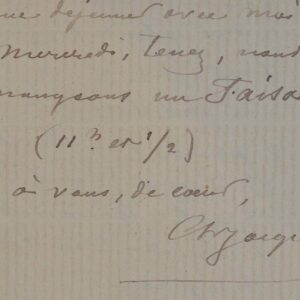 déjeuner avec moi
Mercredi, tenez, nous
mangeons un Faisa
(11 h et 1/2)
à vous, de cœur,
Ch Jacqu